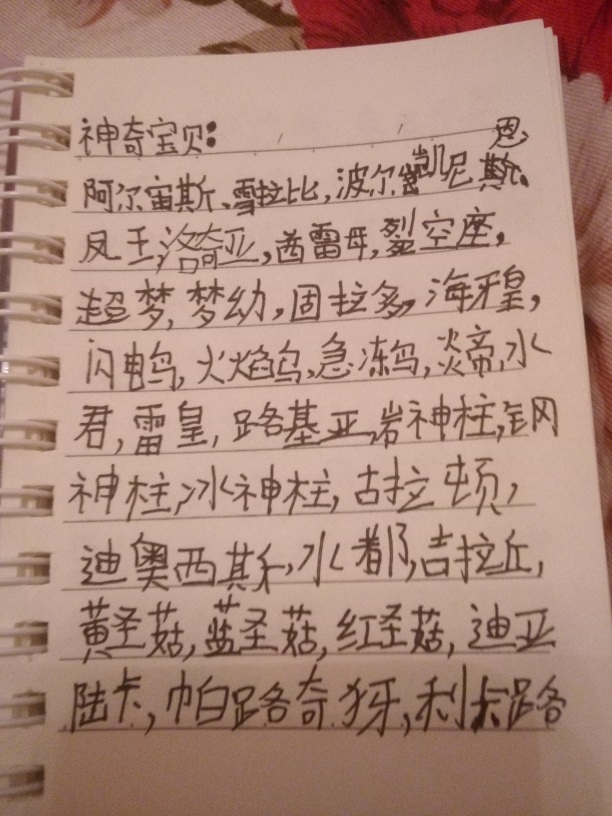 神奇宝贝:
恩
阿尔宙斯、雪拉比,波尔凯尼斯。
凤王洛奇亚,酋雷母,裂空座,
超梦,梦幼,固拉多,海牙皇,
闪电鸟,火焰鸟,急冻鸟,炎帝,水
君,雷皇,路基亚,岩神柱,钢
神柱,冰神柱,古拉顿,
迪奥西斯,水都,吉拉丘,
黄圣菇,蓝圣菇,红圣菇,迪亚
陆卡,帕路奇犽,利卡路